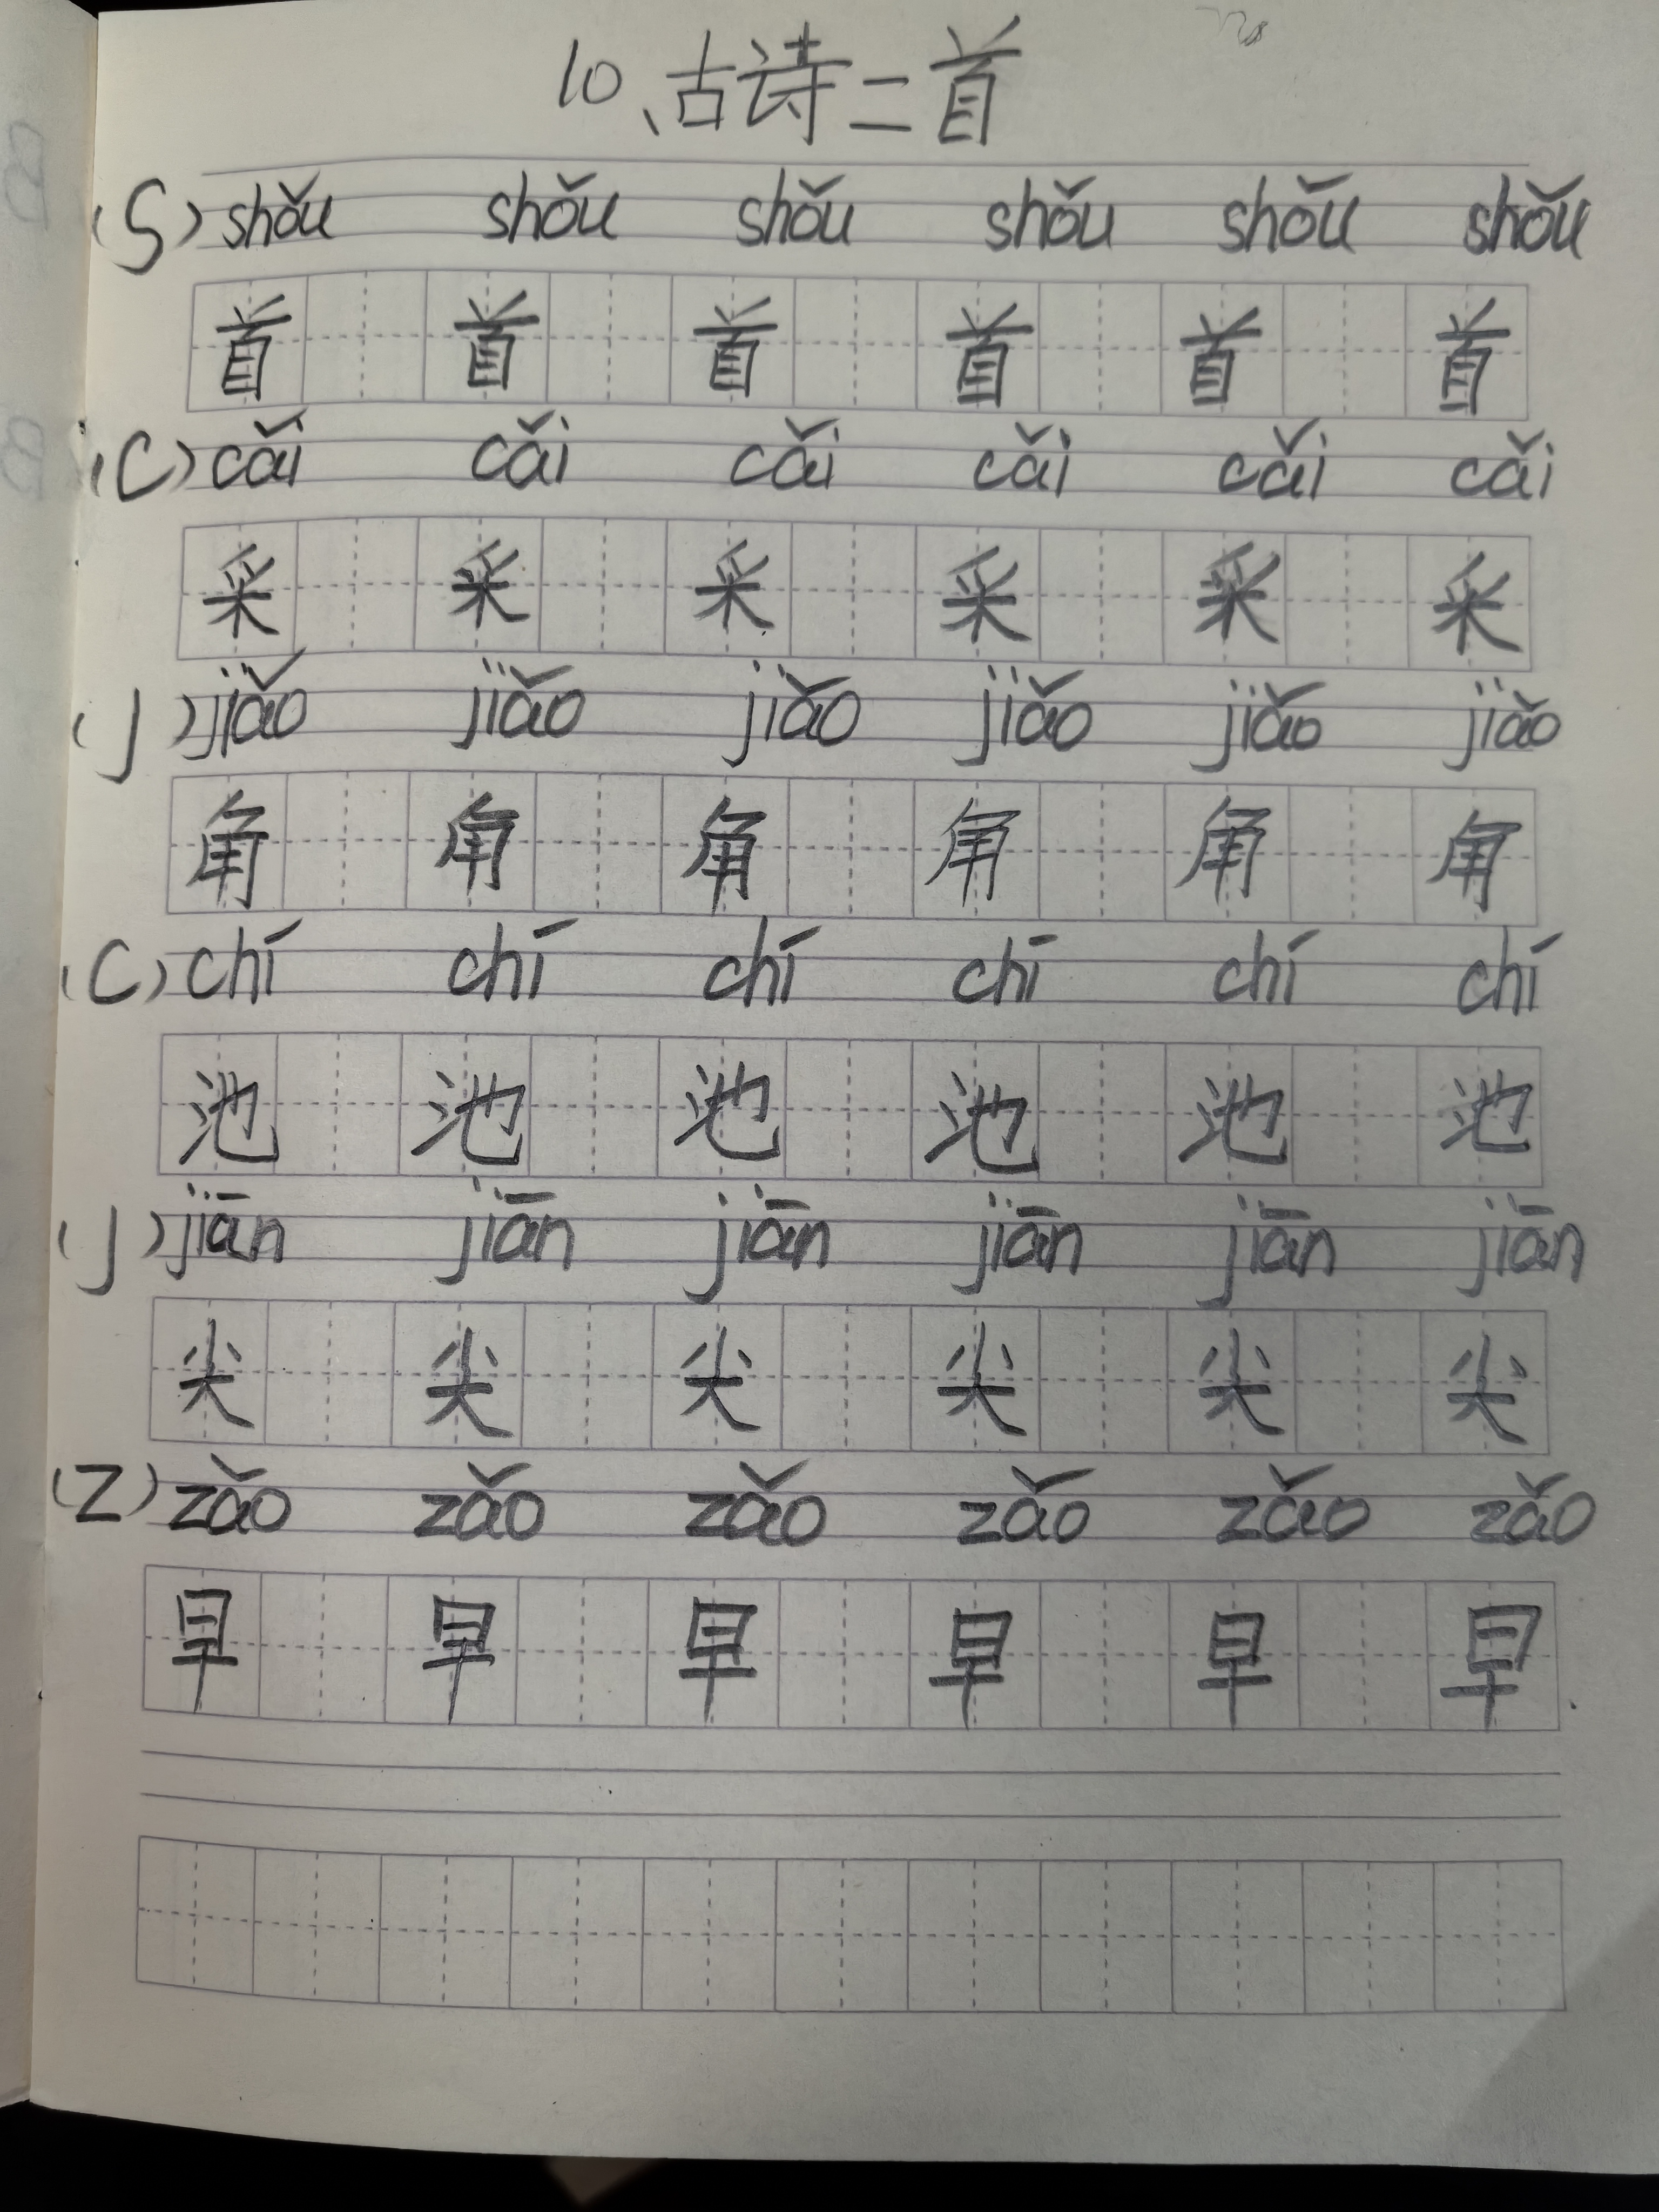 10、古诗二首
(S) shǒu shǒu shǒu shǒu shǒu shǒu
首 首 首 首 首 首
(C) cǎi cǎi cǎi cǎi cǎi cǎi
采 采 采 采 采 采
(J) jiǎo jiǎo jiǎo jiǎo jiǎo jiǎo
角 角 角 角 角 角
(C) chí chí chí chí chí chí
池 池 池 池 池 池
(J) jiān jiān jiān jiān jiān jiān
尖 尖 尖 尖 尖 尖
(Z) zǎo zǎo zǎo zǎo zǎo zǎo
早 早 早 早 早 早